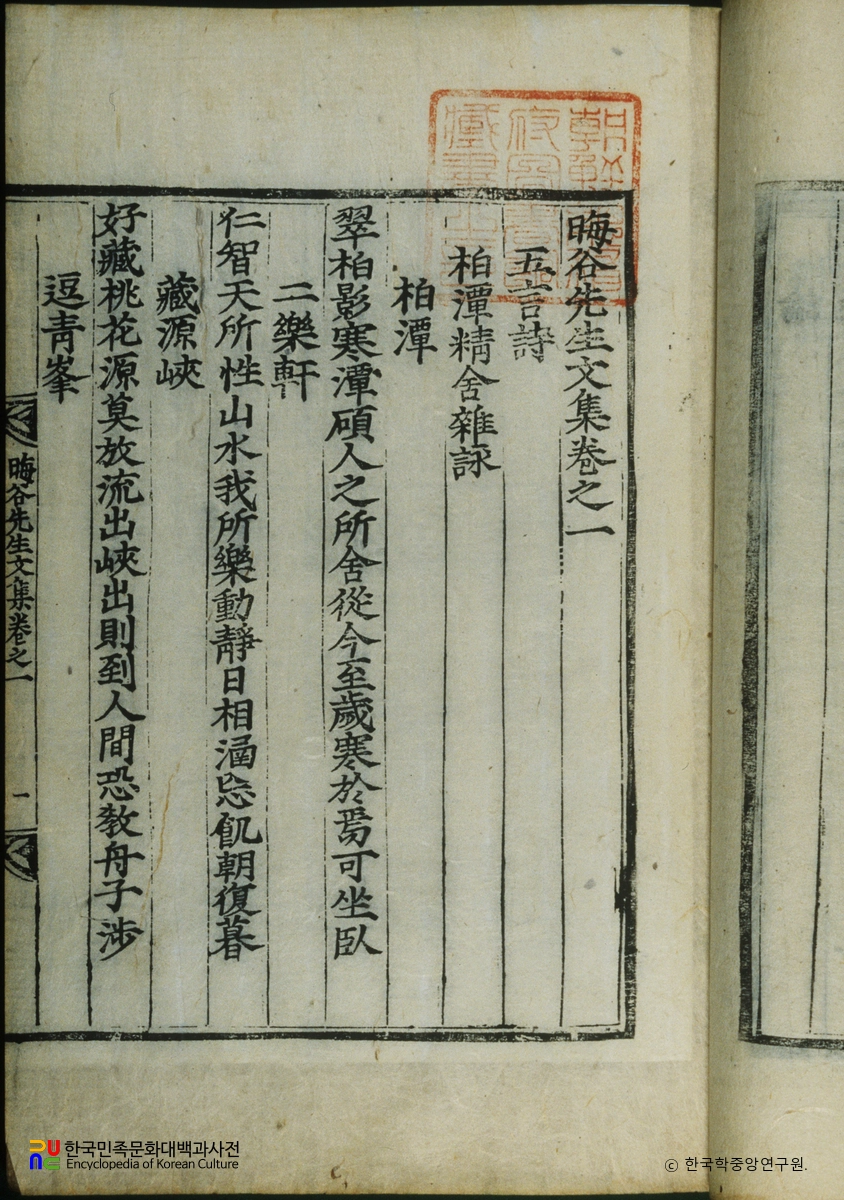 晦谷先生文集卷之一
五言詩
柏潭精舍雜詠
柏潭
翠柏影寒潭碩人之所舍從今至歲寒於焉可坐臥
二樂軒
仁智天所性山水我所樂動靜日相涵忘飢朝復暮
藏源峽
好藏桃花源莫放流出峽出則到人間恐教舟子涉
逗靑峯
晦谷先生文集卷之一
一
한국민족문화대백과사전
Encyclopedia of Korean Culture
© 한국학중앙연구원.